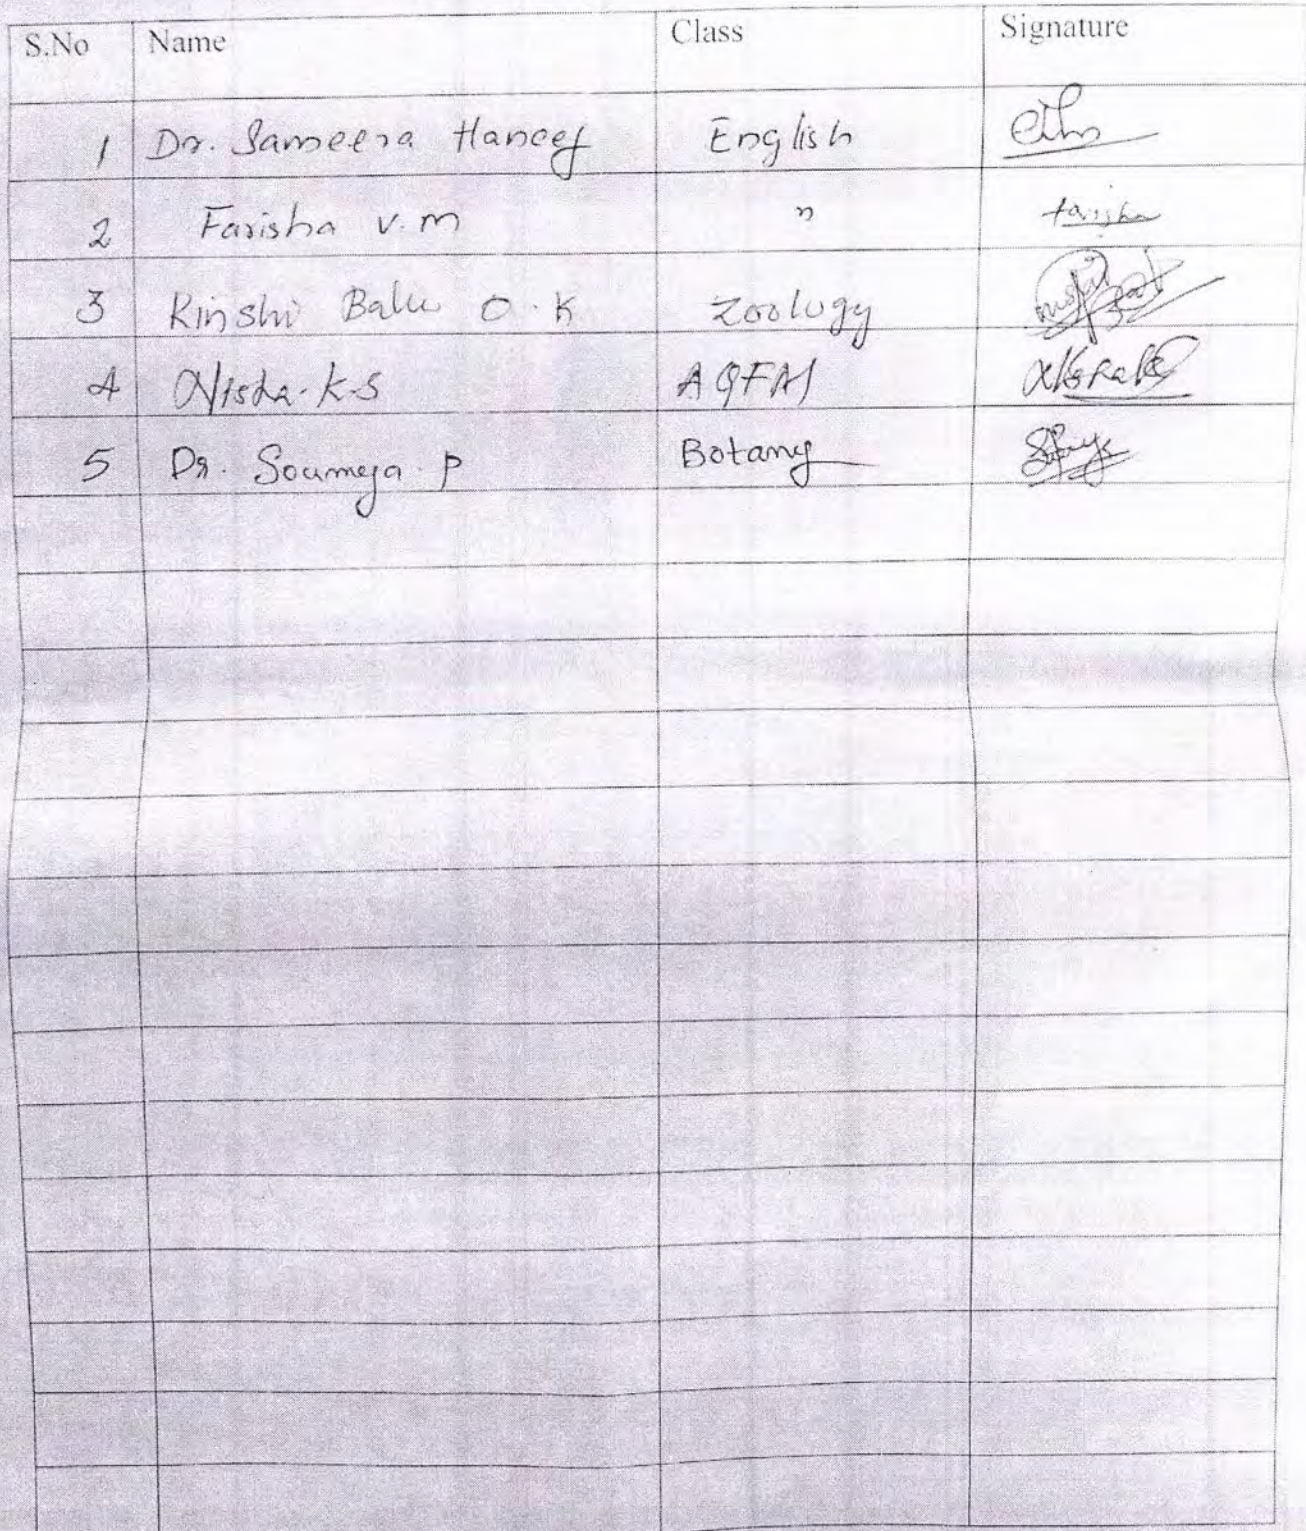 S.No Name Class Signature
1 Dr. Sameera Haneef English
2 Farisha V.M " Farisha
3 Rinshi Balu O.K Zoology
4 Nisha.K.S AQFM
5 Dr. Soumya.P Botany